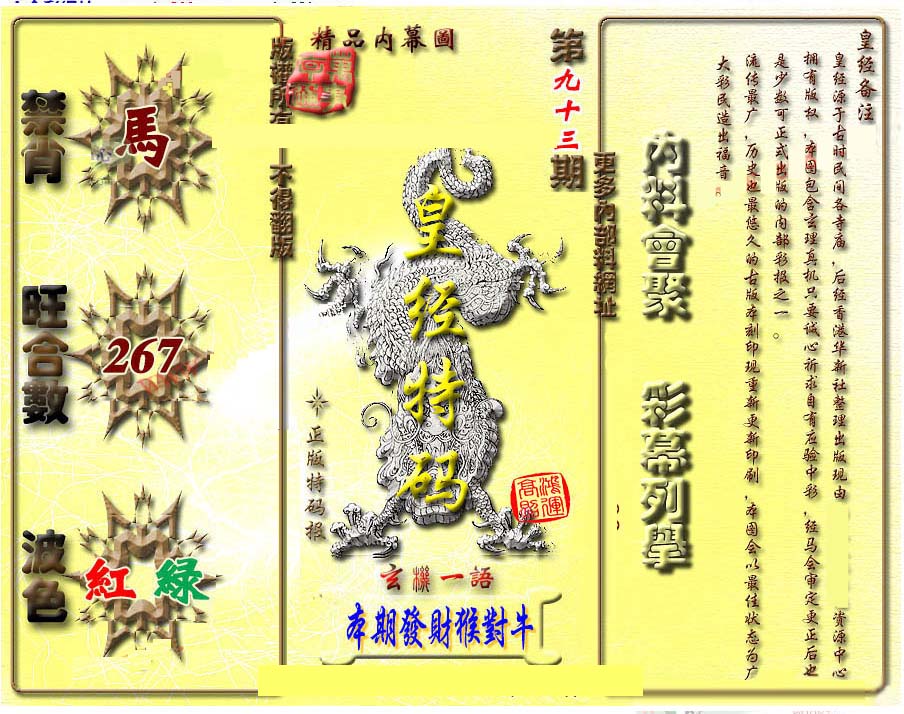 精品内幕圖
第九十三期
禁肖
馬
旺合數
267
波色
紅 綠
版權所有
不得翻版
皇经特码
正版特码报
鴻運高照
玄機一語
本期發財猴對牛
更多內部料網址
內料會聚
彩幕列舉
皇经备注
皇经源于古时民间各寺庙，后经香港华新社整理出版现由 资源中心
拥有版权，本图包含玄理真机只要诚心祈求自有应验中彩，经马会审定更正后也
是少数可正式出版的内部彩报之一。
流传最广，历史也最悠久的古版本刻印现重新更新印刷，本图会以最佳状态为广
大彩民造出福音